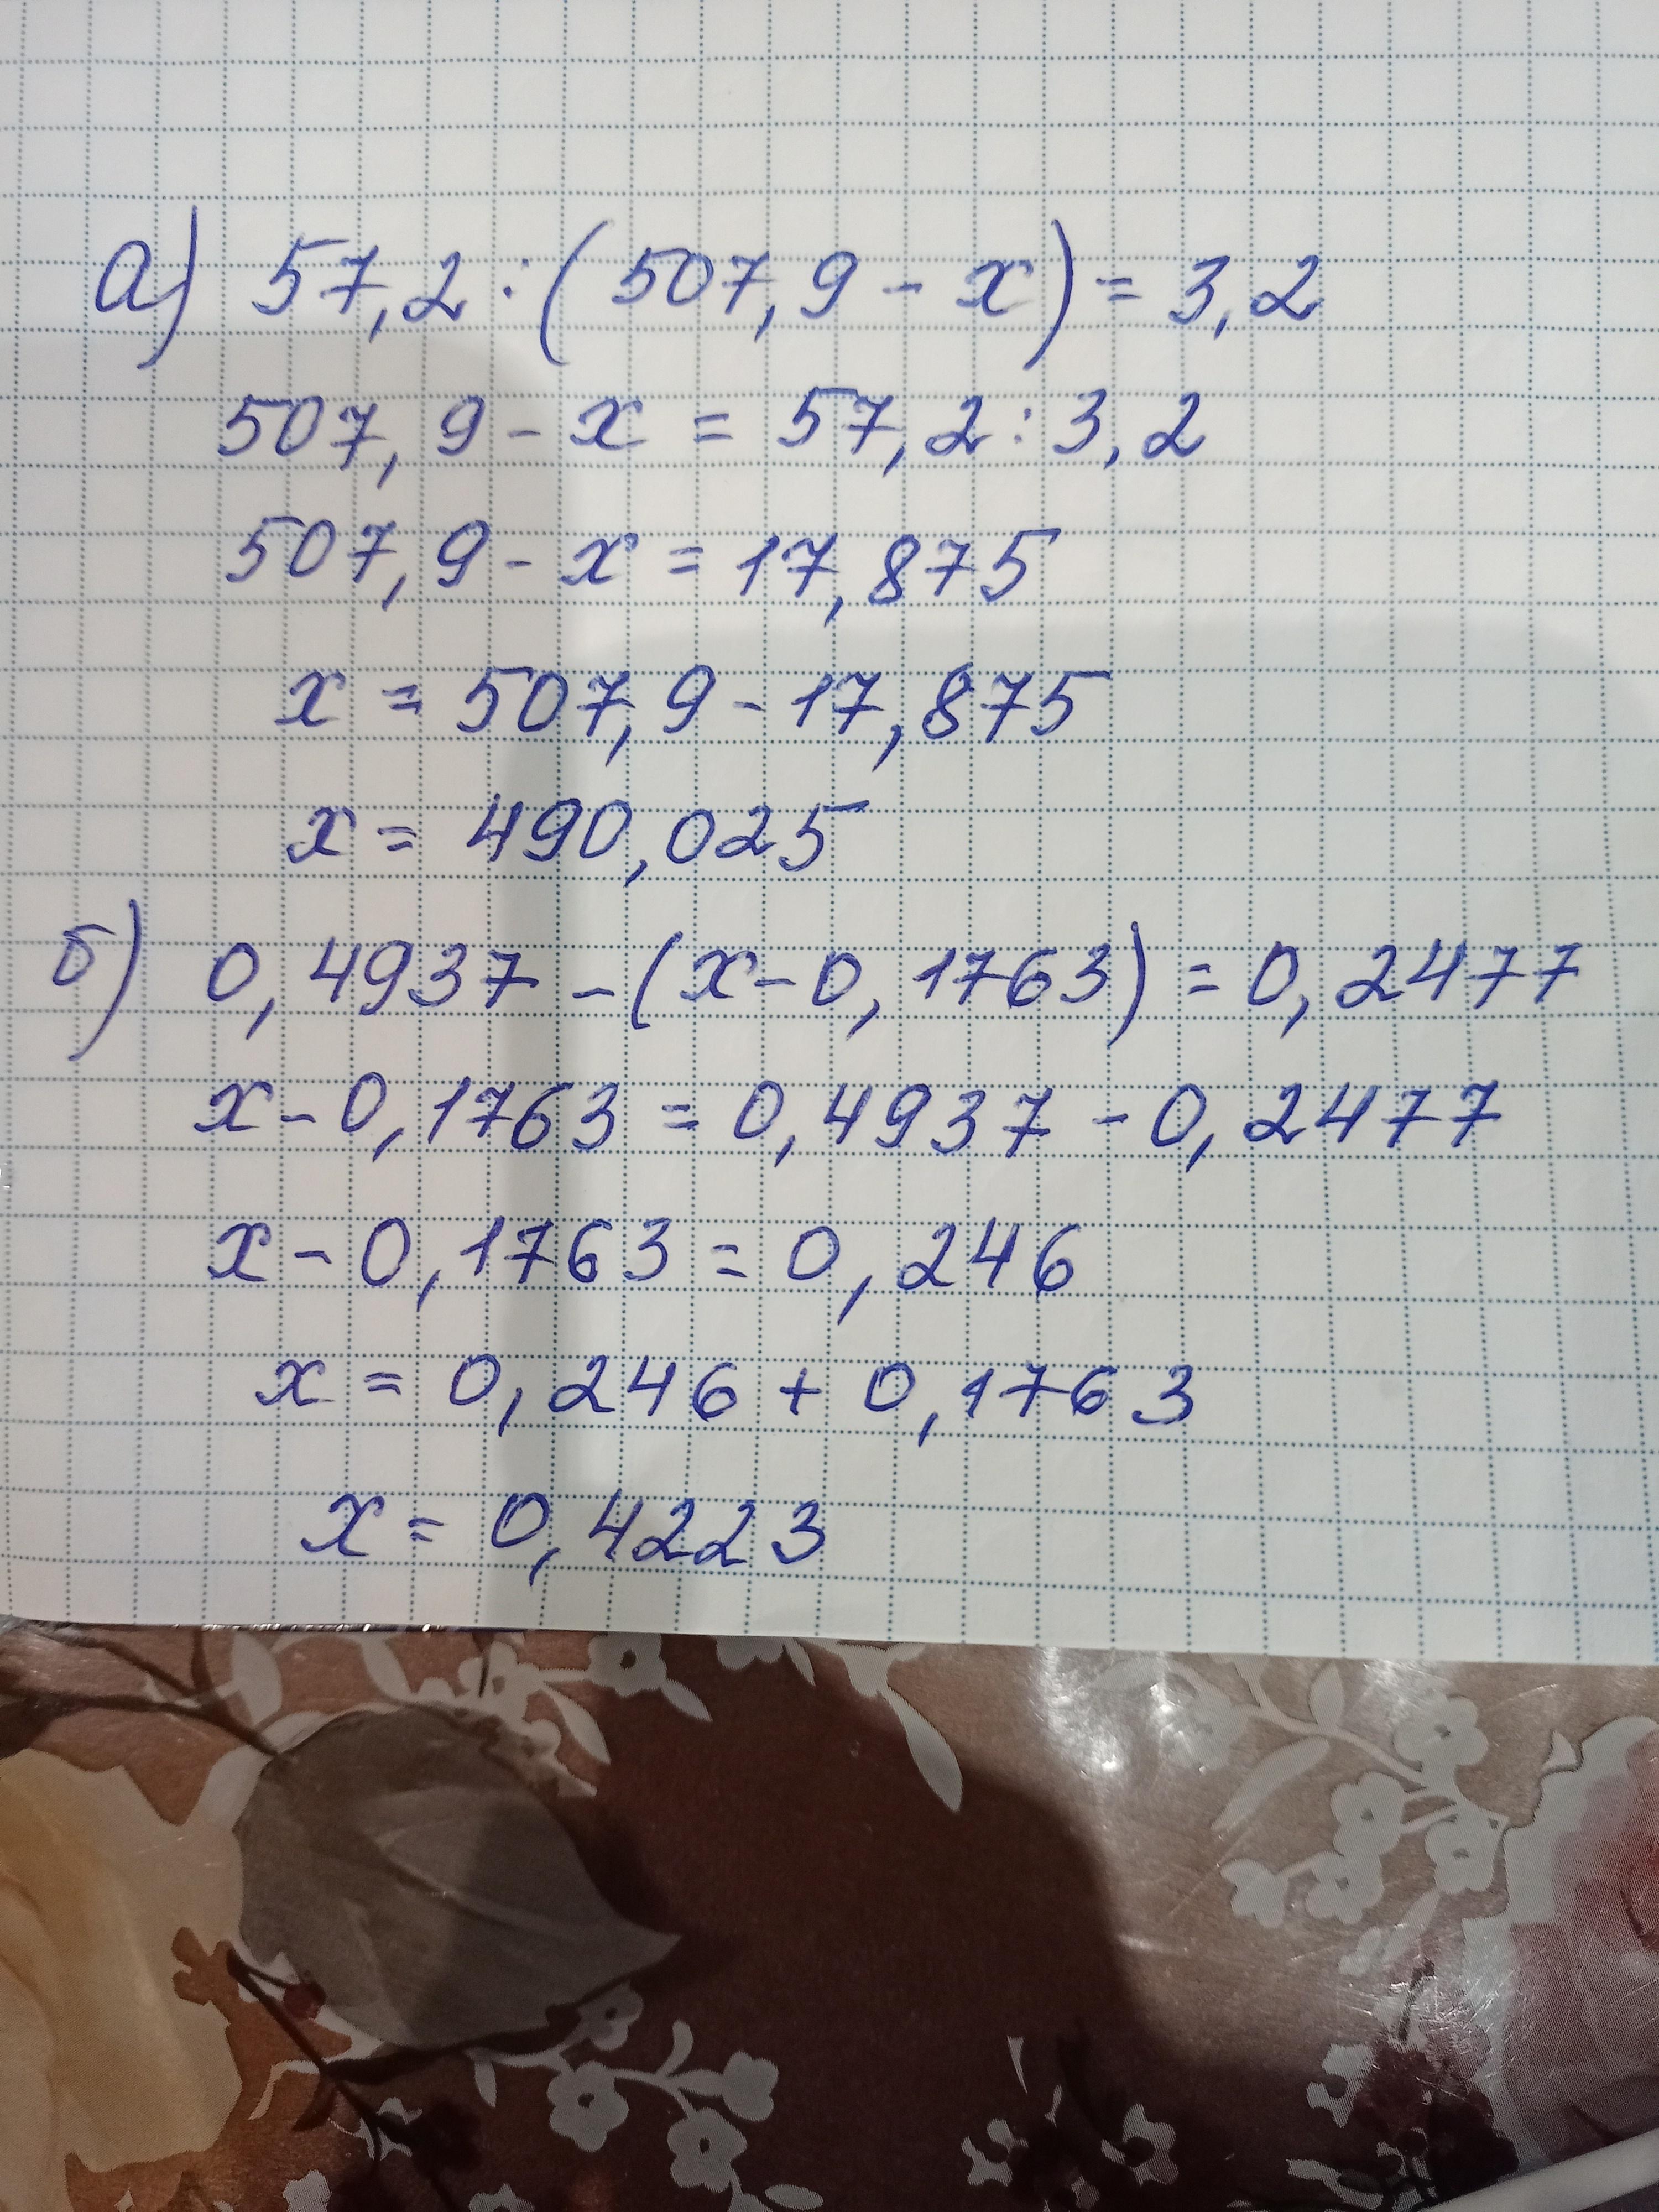 а) 57,2 : (507,9 - x) = 3,2
507,9 - x = 57,2 : 3,2
507,9 - x = 17,875
x = 507,9 - 17,875
x = 490,025
б) 0,4937 - (x - 0,1763) = 0,2477
x - 0,1763 = 0,4937 - 0,2477
x - 0,1763 = 0,246
x = 0,246 + 0,1763
x = 0,4223